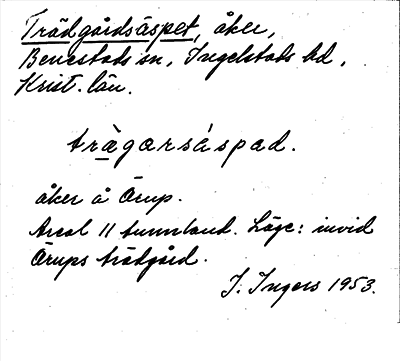 Trädgårdsäspet, åker,
Benestads sn, Ingelstads hd,
Krist. län.
tràgarsáspad.
åker å Örup.
Areal 11 tunnland. Läge: invid
Örups trädgård.
I. Ingers 1953.